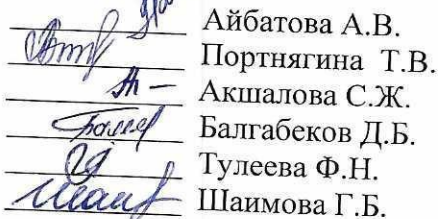 Айбатова А.В.
Портнягина Т.В.
Акшалова С.Ж.
Балгабеков Д.Б.
Тулеева Ф.Н.
Шаимова Г.Б.